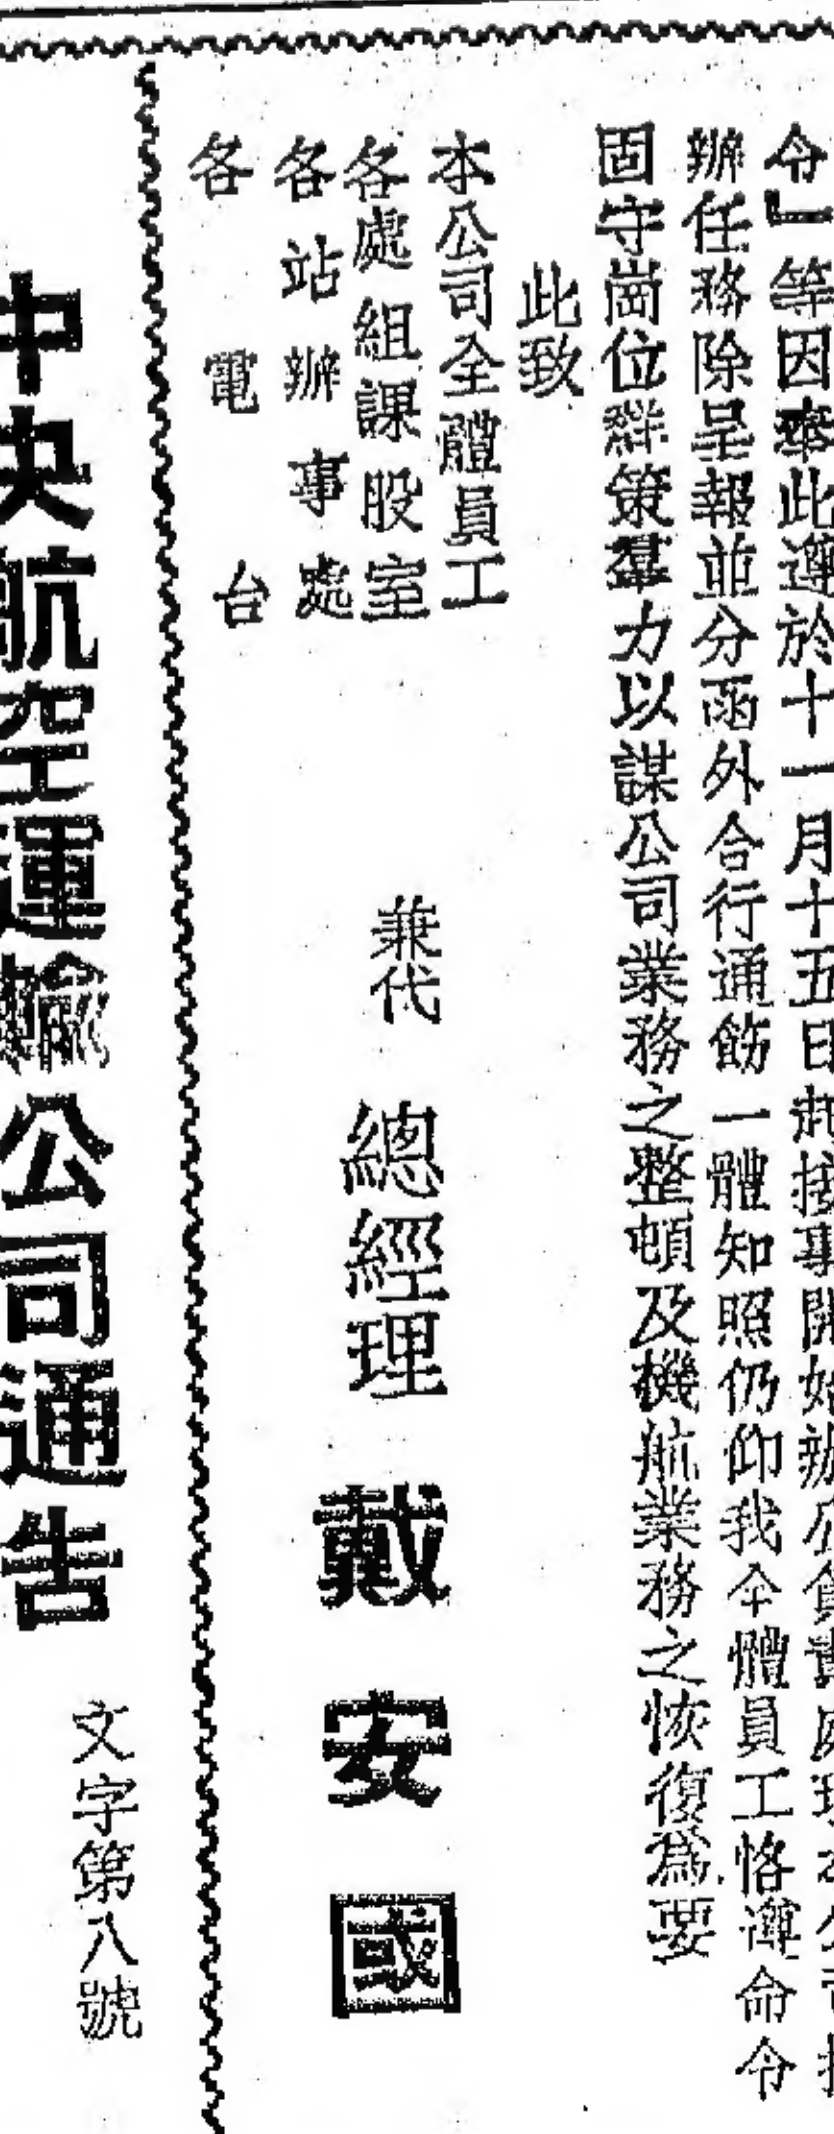 令」等因奉此遵於十一月十五日起接事開始辦公負責處理本公司
辦任務除呈報並分函外合行通飭一體知照仍仰我全體員工恪遵命令
固守崗位群策羣力以謀公司業務之整頓及機航業務之恢復為要
此致
本公司全體員工
各處組課股室
各站辦事處
各電台
兼代總經理戴安國
中央航空運輸公司通告
文字第八號